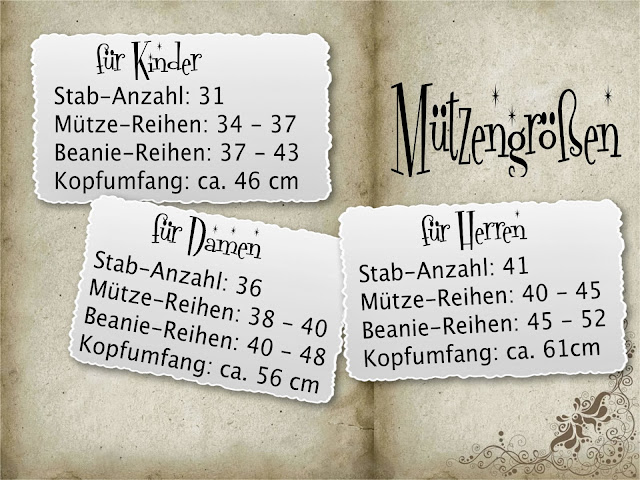 für Kinder
Stab-Anzahl: 31
Mütze-Reihen: 34 - 37
Beanie-Reihen: 37 - 43
Kopfumfang: ca. 46 cm
Mützengrößen
für Damen
Stab-Anzahl: 36
Mütze-Reihen: 38 - 40
Beanie-Reihen: 40 - 48
Kopfumfang: ca. 56 cm
für Herren
Stab-Anzahl: 41
Mütze-Reihen: 40 - 45
Beanie-Reihen: 45 - 52
Kopfumfang: ca. 61cm